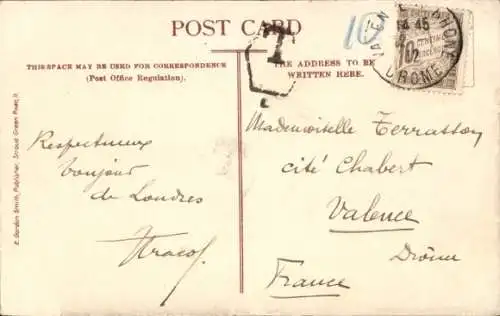 POST CARD
THIS SPACE MAY BE USED FOR CORRESPONDENCE
(Post Office Regulation).
THE ADDRESS TO BE
WRITTEN HERE.
T
10
14 45
12
DROME
10 CENTIMES
E. Gordon Smith, Publisher, Stroud Green Road, N.
Respectueux
bonjour
de Londres
Mademoiselle Terrasson
cité Chabert
Valence
Drôme
France